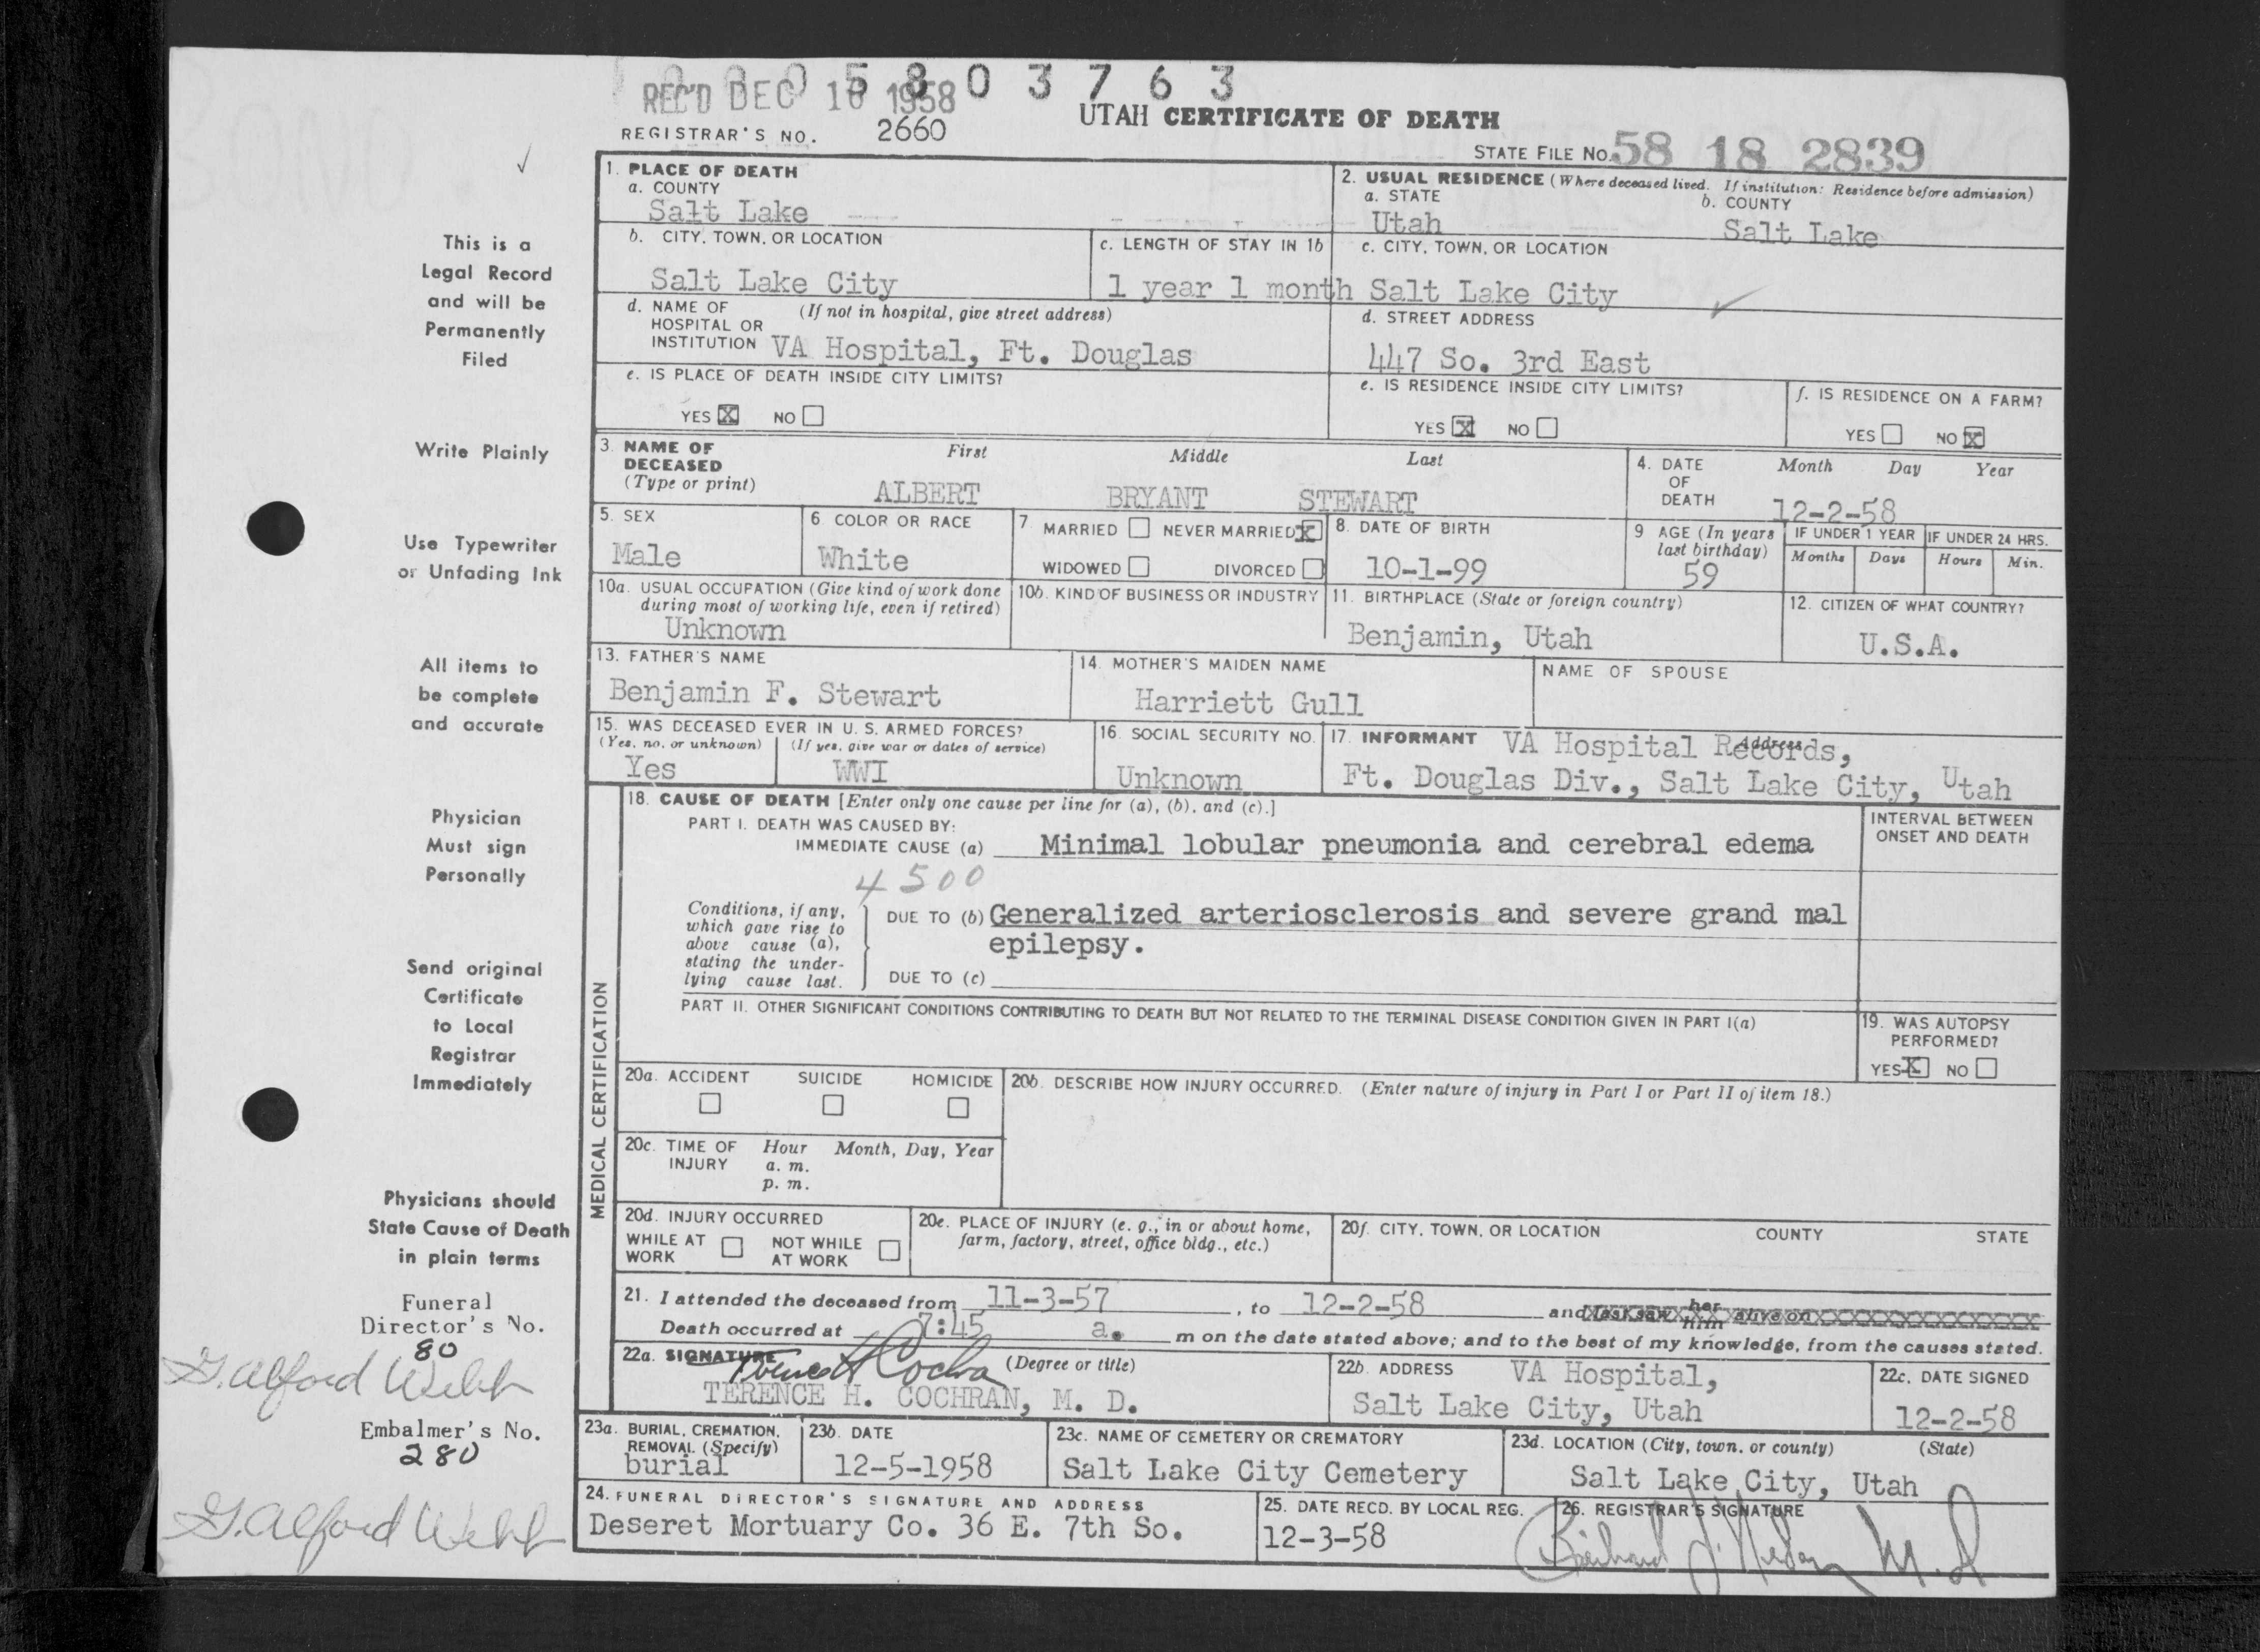 0005803763
REC'D DEC 10 1958
UTAH CERTIFICATE OF DEATH
REGISTRAR'S NO. 2660
STATE FILE NO. 58 18 2839
This is a
Legal Record
and will be
Permanently
Filed
Write Plainly
Use Typewriter
or Unfading Ink
All items to
be complete
and accurate
Physician
Must sign
Personally
Send original
Certificate
to Local
Registrar
Immediately
Physicians should
State Cause of Death
in plain terms
Funeral
Director's No.
80
G. Alford Webb
Embalmer's No.
280
G. Alford Webb
1. PLACE OF DEATH
a. COUNTY
Salt Lake
2. USUAL RESIDENCE (Where deceased lived. If institution: Residence before admission)
a. STATE
Utah
b. COUNTY
Salt Lake
b. CITY, TOWN, OR LOCATION
Salt Lake City
c. LENGTH OF STAY IN 1b
1 year 1 month
c. CITY, TOWN, OR LOCATION
Salt Lake City
d. NAME OF (If not in hospital, give street address)
HOSPITAL OR
INSTITUTION VA Hospital, Ft. Douglas
d. STREET ADDRESS
447 So. 3rd East
e. IS PLACE OF DEATH INSIDE CITY LIMITS?
YES X NO
e. IS RESIDENCE INSIDE CITY LIMITS?
YES X NO
f. IS RESIDENCE ON A FARM?
YES NO X
3. NAME OF DECEASED (Type or print)
First Middle Last
ALBERT BRYANT STEWART
4. DATE OF DEATH
Month Day Year
12-2-58
5. SEX
Male
6. COLOR OR RACE
White
7. MARRIED NEVER MARRIED X
WIDOWED DIVORCED
8. DATE OF BIRTH
10-1-99
9 AGE (In years last birthday)
59
IF UNDER 1 YEAR
Months Days
IF UNDER 24 HRS.
Hours Min.
10a. USUAL OCCUPATION (Give kind of work done
during most of working life, even if retired)
Unknown
10b. KIND OF BUSINESS OR INDUSTRY
11. BIRTHPLACE (State or foreign country)
Benjamin, Utah
12. CITIZEN OF WHAT COUNTRY?
U.S.A.
13. FATHER'S NAME
Benjamin F. Stewart
14. MOTHER'S MAIDEN NAME
Harriett Gull
NAME OF SPOUSE
15. WAS DECEASED EVER IN U. S. ARMED FORCES?
(Yes, no, or unknown) (If yes, give war or dates of service)
Yes WWI
16. SOCIAL SECURITY NO.
Unknown
17. INFORMANT Address
VA Hospital Records,
Ft. Douglas Div., Salt Lake City, Utah
MEDICAL CERTIFICATION
18. CAUSE OF DEATH [Enter only one cause per line for (a), (b), and (c).]
PART I. DEATH WAS CAUSED BY:
IMMEDIATE CAUSE (a) Minimal lobular pneumonia and cerebral edema
INTERVAL BETWEEN
ONSET AND DEATH
4500
Conditions, if any,
which gave rise to
above cause (a),
stating the under-
lying cause last.
DUE TO (b) Generalized arteriosclerosis and severe grand mal
epilepsy.
DUE TO (c)
PART II. OTHER SIGNIFICANT CONDITIONS CONTRIBUTING TO DEATH BUT NOT RELATED TO THE TERMINAL DISEASE CONDITION GIVEN IN PART I(a)
19. WAS AUTOPSY
PERFORMED?
YES X NO
20a. ACCIDENT SUICIDE HOMICIDE
20b. DESCRIBE HOW INJURY OCCURRED. (Enter nature of injury in Part I or Part II of item 18.)
20c. TIME OF INJURY
Hour Month, Day, Year
a. m.
p. m.
20d. INJURY OCCURRED
WHILE AT WORK NOT WHILE AT WORK
20e. PLACE OF INJURY (e. g., in or about home,
farm, factory, street, office bldg., etc.)
20f. CITY, TOWN, OR LOCATION COUNTY STATE
21. I attended the deceased from 11-3-57, to 12-2-58 and last saw her him alive on
Death occurred at 7:45 a. m on the date stated above; and to the best of my knowledge, from the causes stated.
22a. SIGNATURE (Degree or title)
Terence H Cochran
TERENCE H. COCHRAN, M. D.
22b. ADDRESS VA Hospital,
Salt Lake City, Utah
22c. DATE SIGNED
12-2-58
23a. BURIAL, CREMATION,
REMOVAL (Specify)
burial
23b. DATE
12-5-1958
23c. NAME OF CEMETERY OR CREMATORY
Salt Lake City Cemetery
23d. LOCATION (City, town, or county) (State)
Salt Lake City, Utah
24. FUNERAL DIRECTOR'S SIGNATURE AND ADDRESS
Deseret Mortuary Co. 36 E. 7th So.
25. DATE RECD. BY LOCAL REG.
12-3-58
26. REGISTRAR'S SIGNATURE
M.D